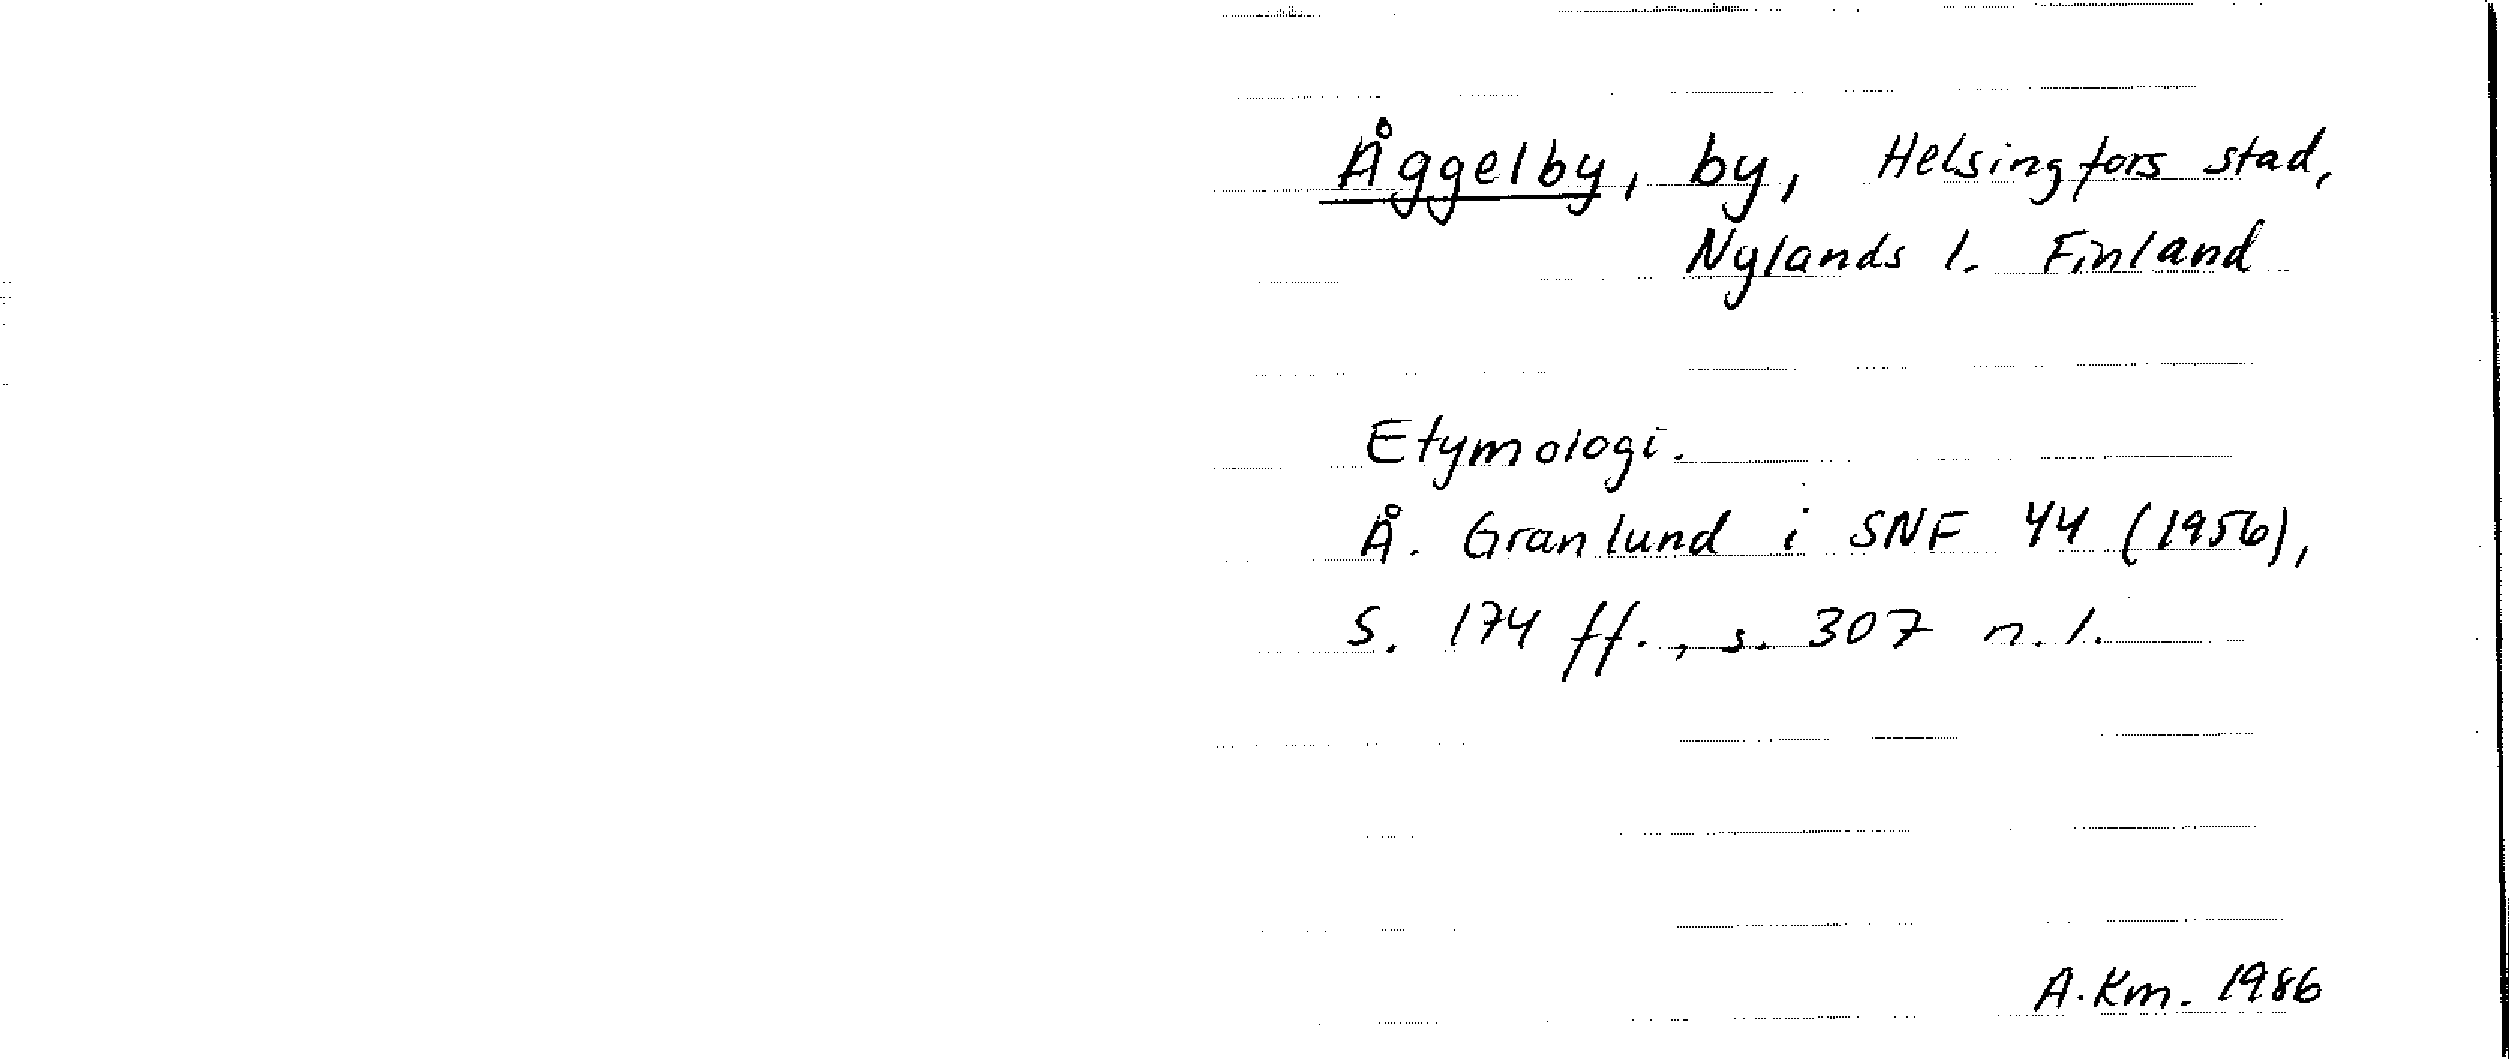 Åggelby, by, Helsingfors stad,
Nylands l. Finland
Etymologi.
Å. Granlund i SNF 44 (1956),
S. 174 ff., s. 307 n. 1.
A. Km. 1986